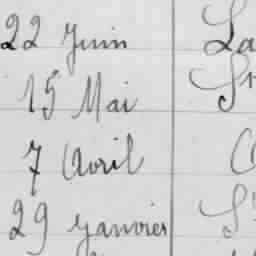 22 Juin La
15 Mai St
7 Avril
29 Janvier St